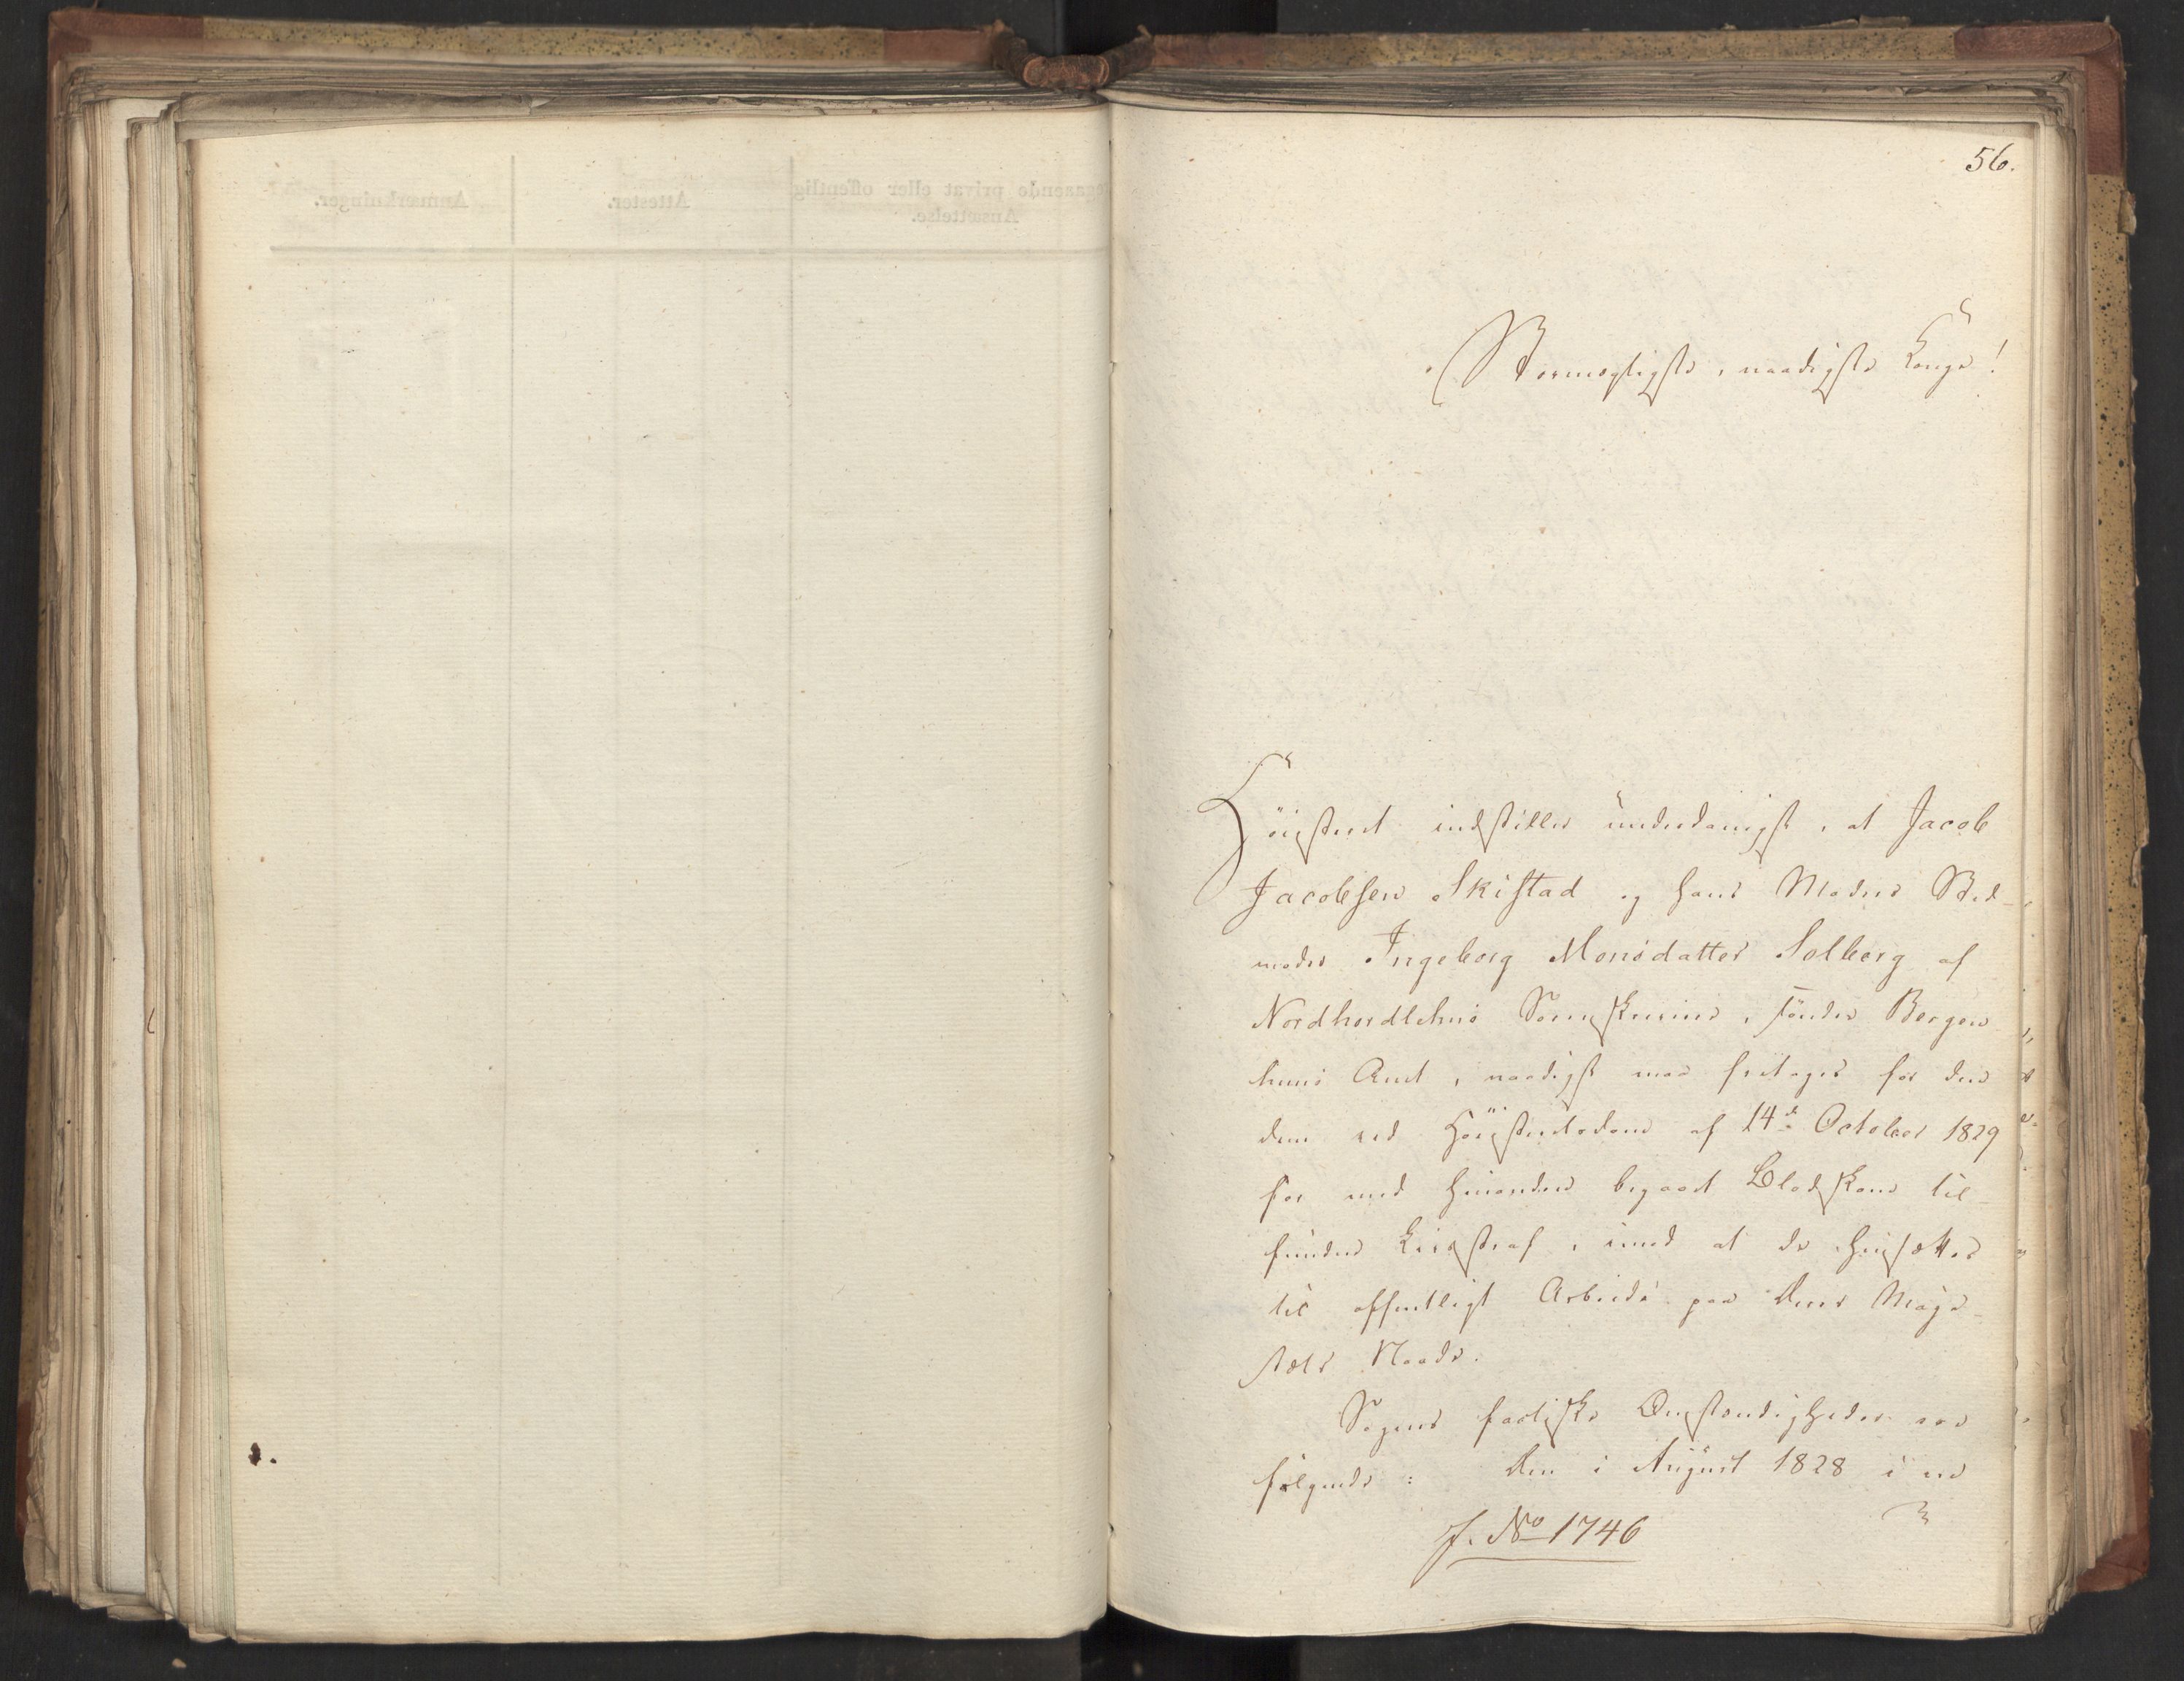 56.
Stormægtigste, naadigste Konge!
Höiesteret indstiller underdanigst, at Jacob
Jacobsen Skistad og hans Moders Sted-
moder Ingeborg Monsdatter Solberg af
Nordhordlehns Sorenskriveri, söndre Bergen
huus Amt, naadigst maa fritages for den
dem ved Höiesteretsdom af 14de October 1829
for med hinanden begaaet Blodskam til-
fundne Livsstraf, imod at de hensættes
til offentligt Arbeide paa Deres Maje-
stæts Naade.
Sagens factiske Omstændigheder ere
følgende: Den i August 1828 i en
J. No 1746